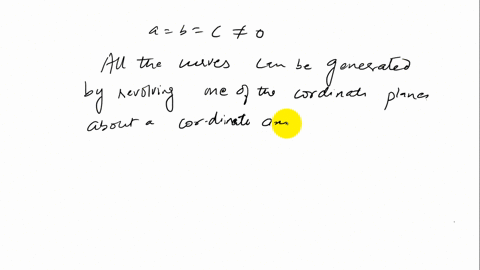 a = b = c ≠ 0
All the curves can be generated
by revolving one of the cordinate planes
about a cor-dinate